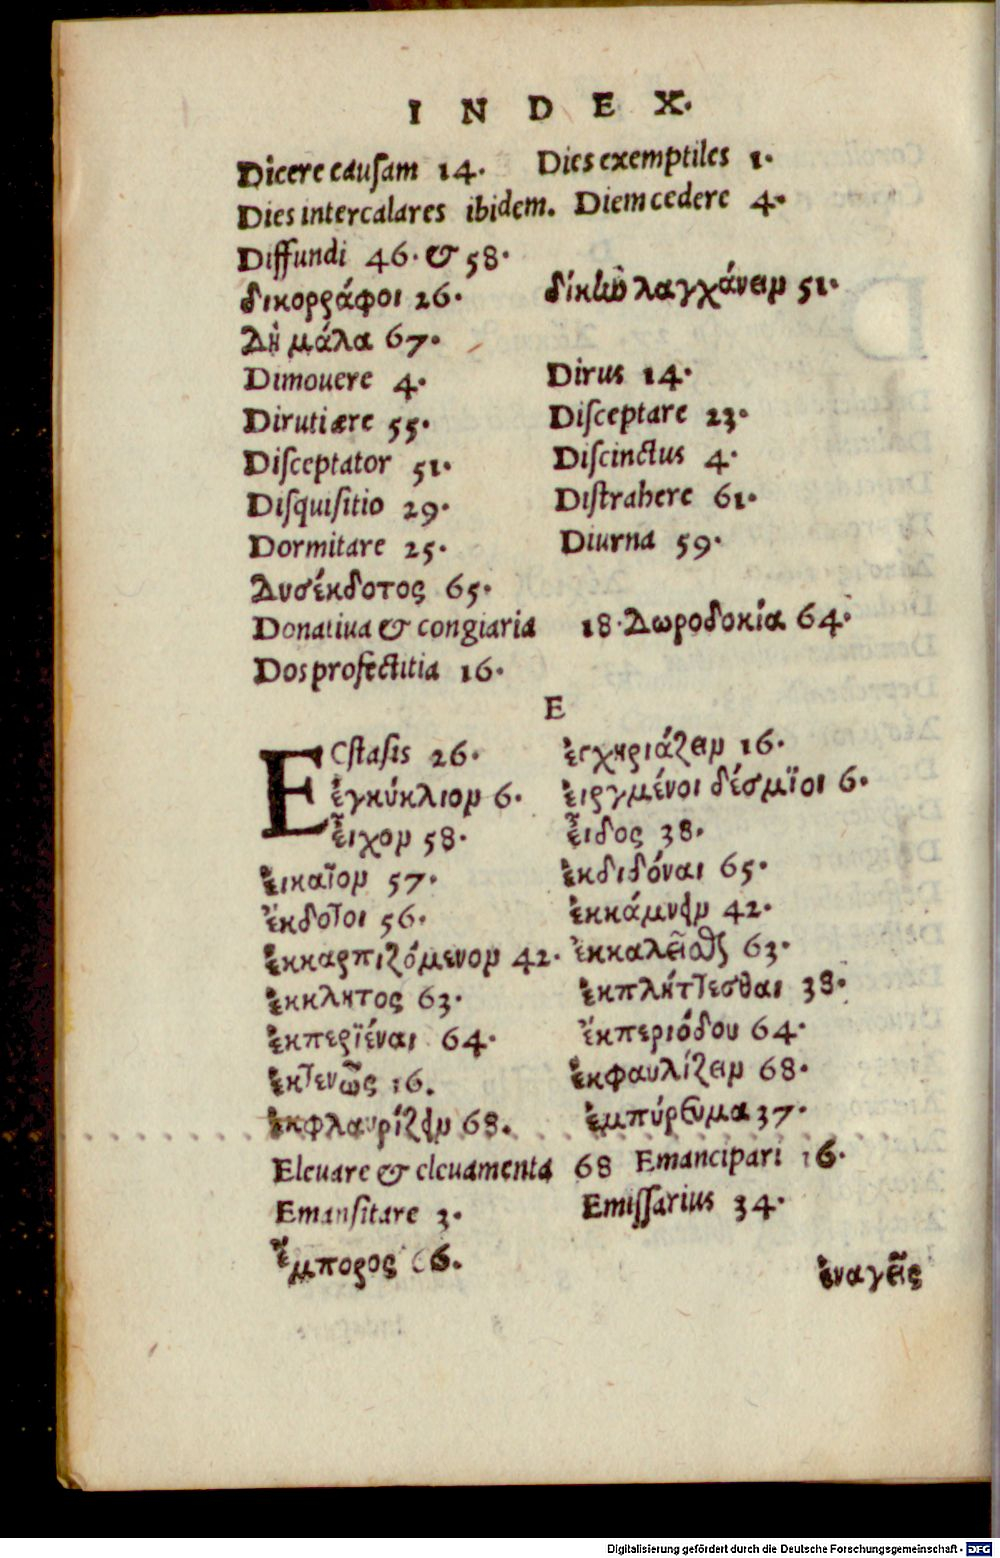 INDEX.
Dicere causam 14. Dies exemptiles 1.
Dies intercalares ibidem. Diem cedere 4.
Diffundi 46. & 58.
δικορράφοι 26. δίκην λαγχάνειν 51.
Δὴ μάλα 67.
Dimouere 4. Dirus 14.
Diruti ære 55. Disceptare 23.
Disceptator 51. Discinctus 4.
Disquisitio 29. Distrahere 61.
Dormitare 25. Diurna 59.
Δυσέκδοτος 65.
Donatiua & congiaria 18. Δωροδοκία 64.
Dos profectitia 16.
E
ECstasis 26. ἐσχηριάζειν 16.
ἐγκύκλιον 6. εἰργμένοι δέσμϊοι 6.
εἶχον 58. εἶδος 38.
εἰκαῖον 57. ἐκδιδόναι 65.
ἔκδοτοι 56. ἐκκάμνειν 42.
ἐκκαρπιζόμενον 42. ἐκκαλεῖσθαι 63.
ἔκκλητος 63. ἐκπλήττεσθαι 38.
ἐκπερϊέναι 64. ἐκπεριόδου 64.
ἐκτενῶς 16. ἐκφαυλίζειν 68.
ἐκφλαυρίζειν 68. ἐμπύρευμα 37.
Eleuare & eleuamenta 68 Emancipari 16.
Emansitare 3. Emissarius 34.
ἔμπορος 66.
ἐναγεῖς
Digitalisierung gefördert durch die Deutsche Forschungsgemeinschaft - DFG